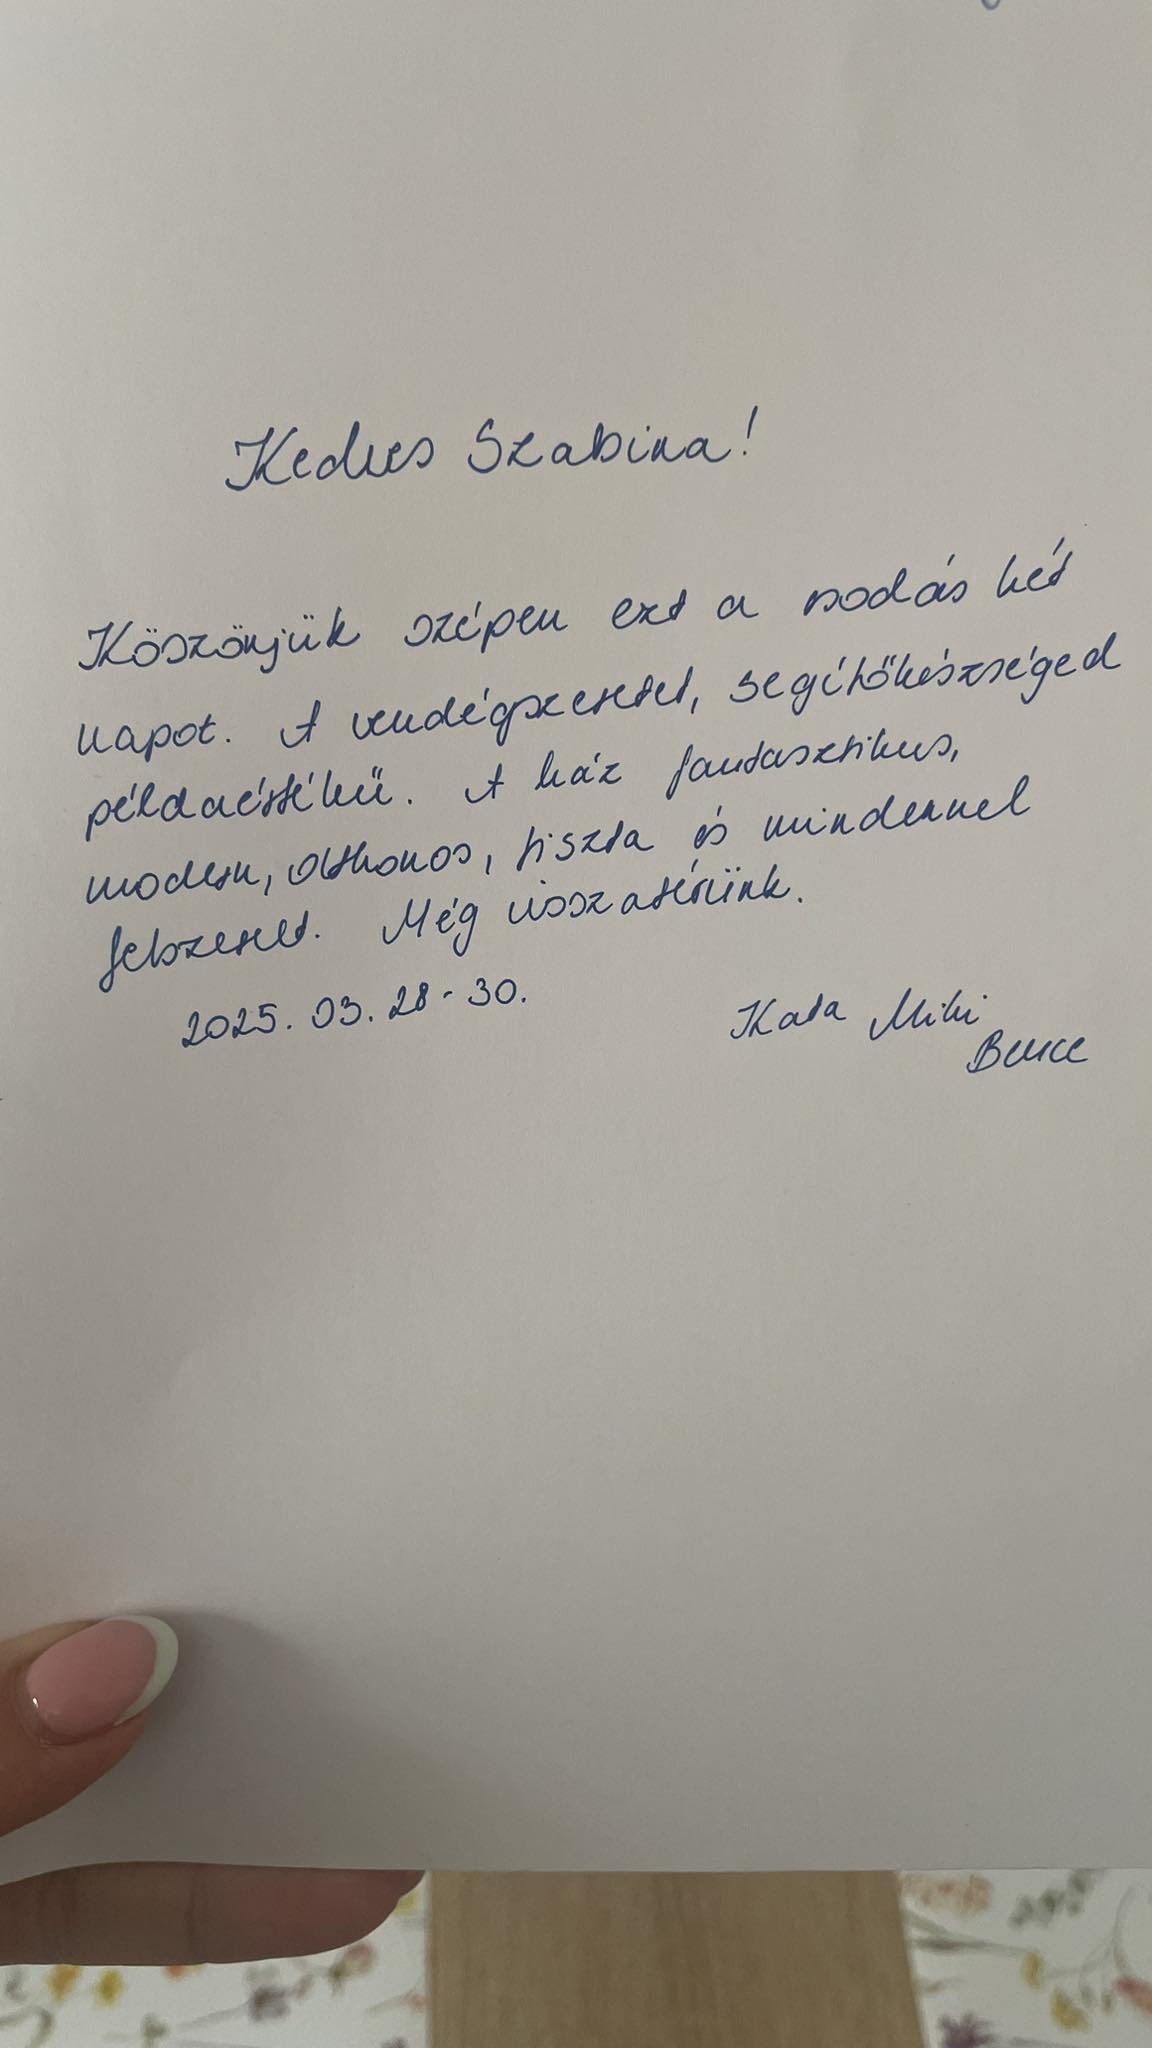 Kedves Szabina!
Köszönjük szépen ezt a csodás két
napot. A vendégszereteted, segítőkészséged
példaértékű. A ház fantasztikus,
modern, otthonos, tiszta és mindennel
felszerelt. Még visszatérünk.
2025. 03. 28-30. Kata Miki
Bence